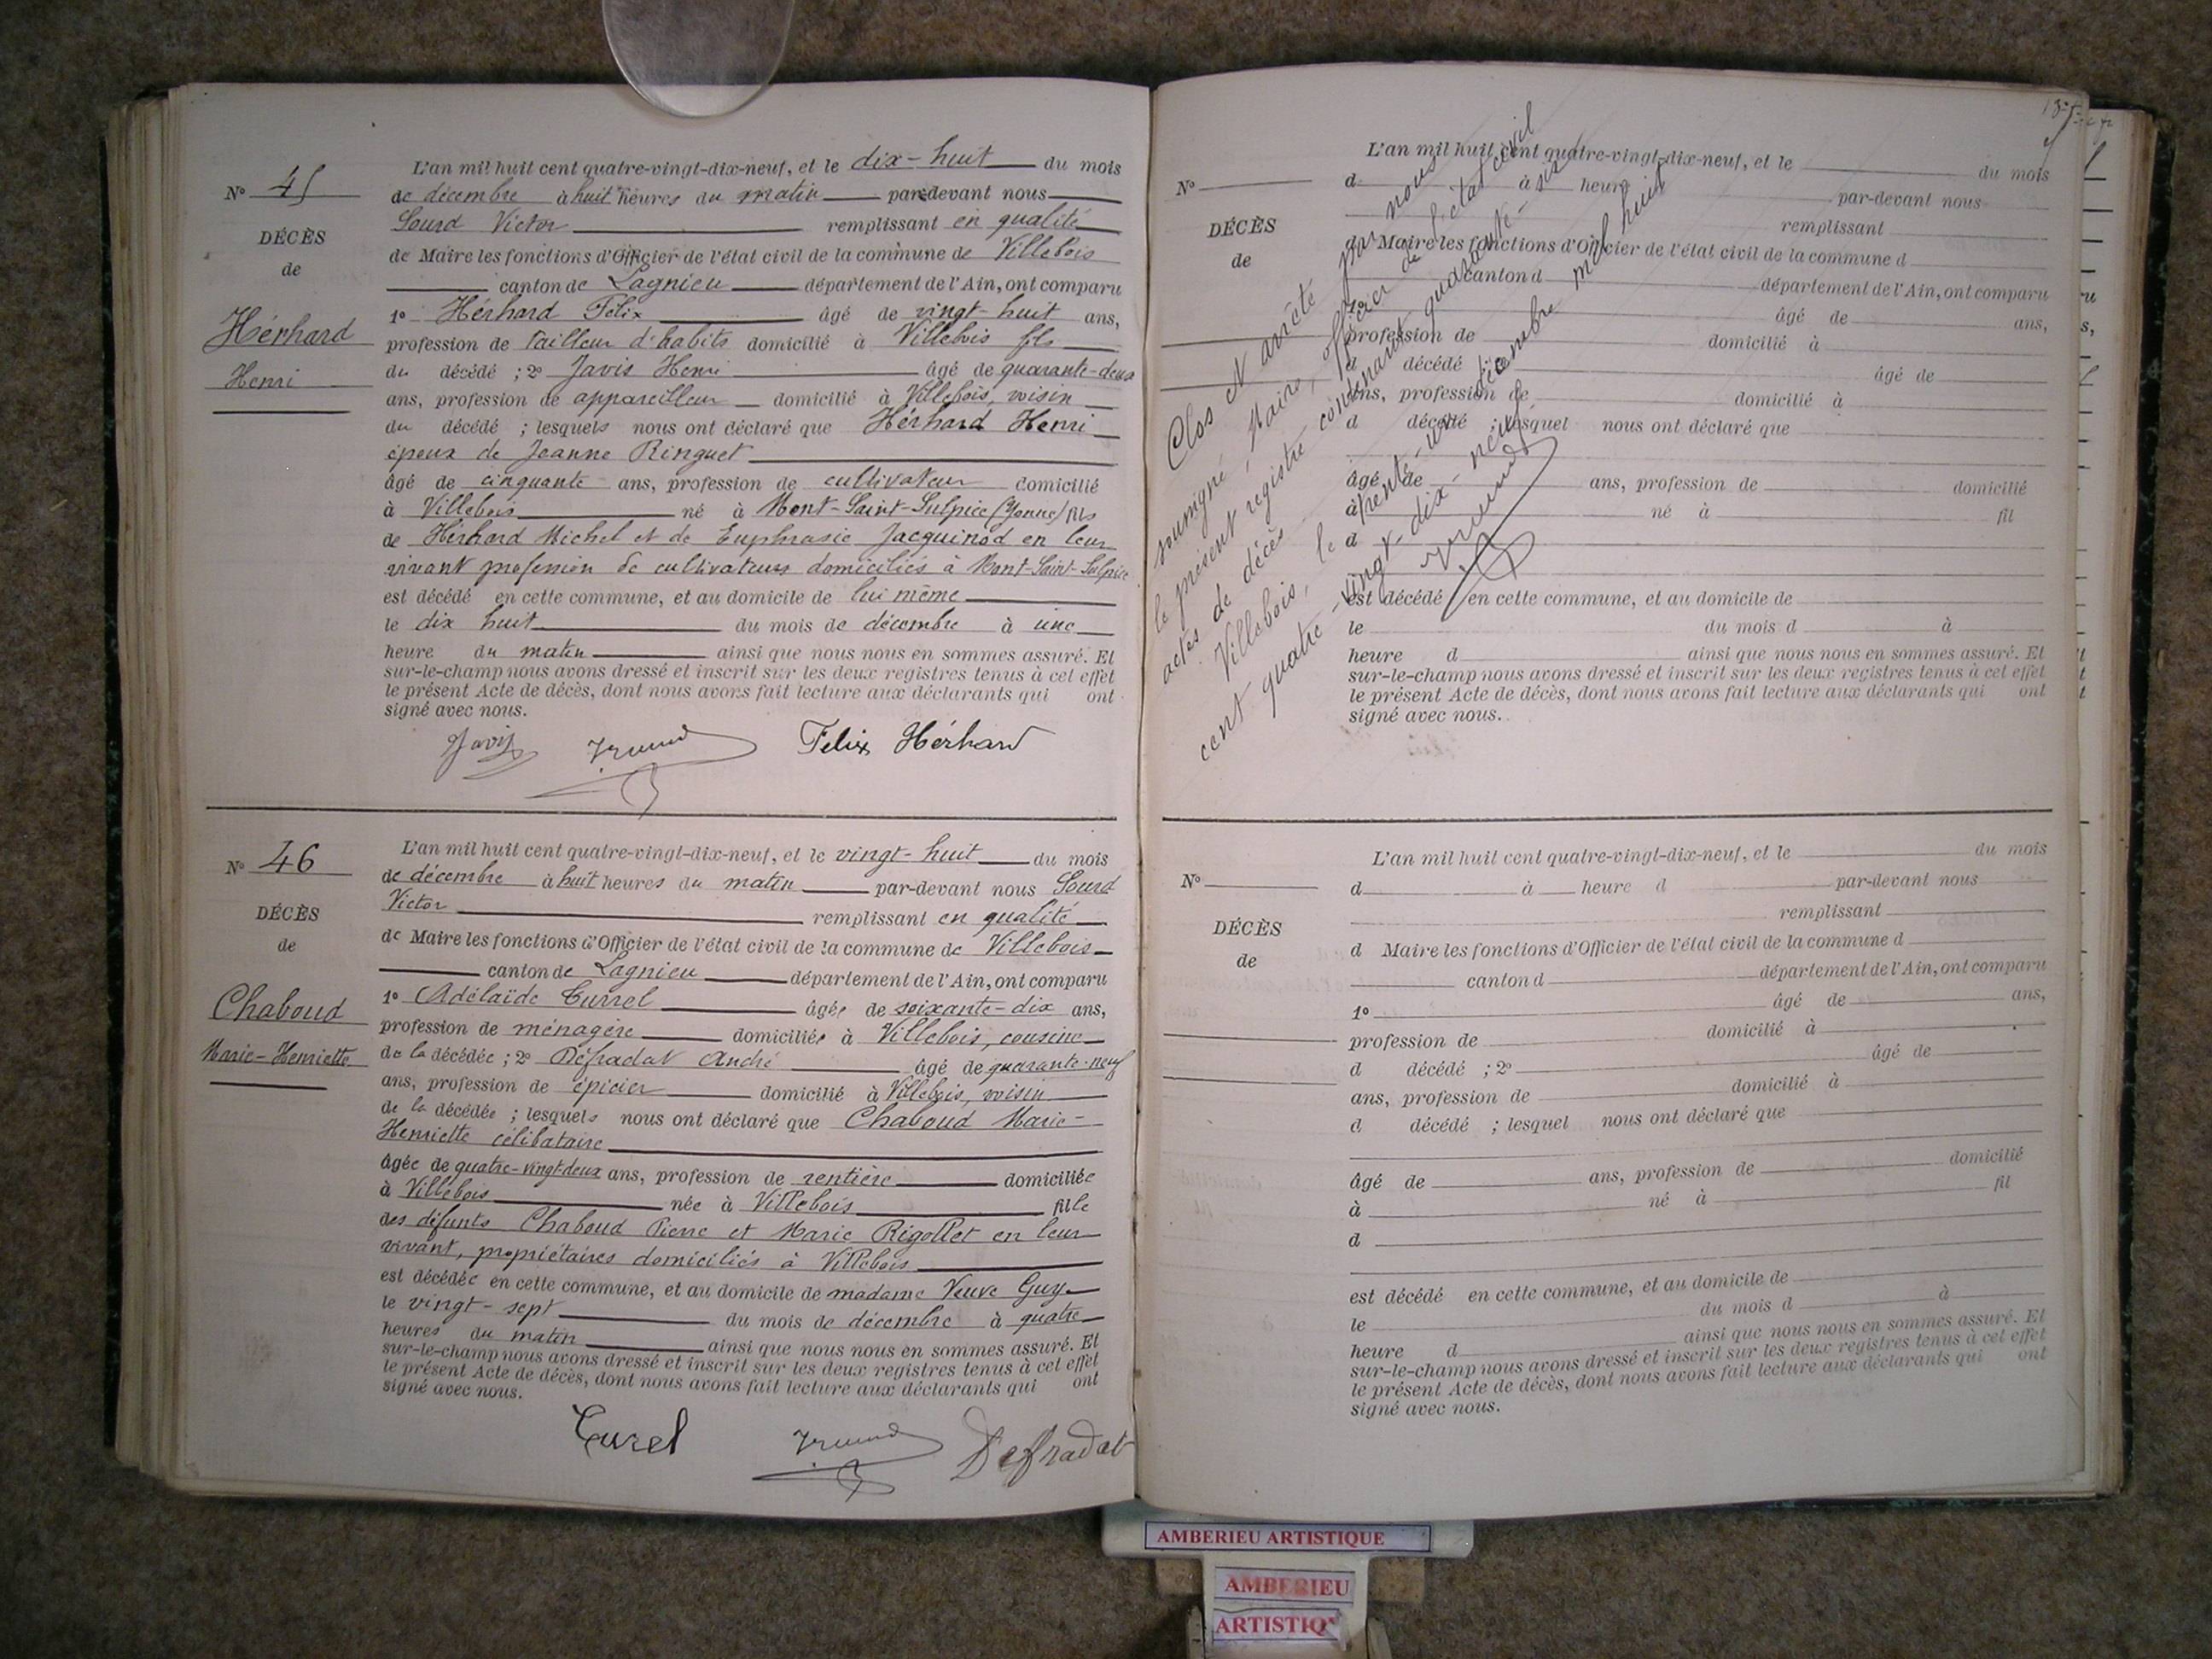 N° 45
DÉCÈS
de
Hérhard
Henri
L'an mil huit cent quatre-vingt-dix-neuf, et le dix-huit du mois
de décembre à huit heures du matin par-devant nous
Sourd Victor remplissant en qualité
de Maire les fonctions d'Officier de l'état civil de la commune de Villebois
canton de Lagnieu département de l'Ain, ont comparu
1° Hérhard Félix âgé de vingt-huit ans,
profession de tailleur d'habits domicilié à Villebois fils
du décédé ; 2° Javis Henri âgé de quarante-deux
ans, profession de appareilleur domicilié à Villebois, voisin
du décédé ; lesquels nous ont déclaré que Hérhard Henri
époux de Jeanne Ringuet
âgé de cinquante ans, profession de cultivateur domicilié
à Villebois né à Mont-Saint-Sulpice (Yonne) fils
de Hérhard Michel et de Euphrasie Jacquinod en leur
vivant profession de cultivateurs domiciliés à Mont-Saint-Sulpice
est décédé en cette commune, et au domicile de lui même
le dix huit du mois de décembre à une
heure du matin ainsi que nous nous en sommes assuré. Et
sur-le-champ nous avons dressé et inscrit sur les deux registres tenus à cet effet
le présent Acte de décès, dont nous avons fait lecture aux déclarants qui ont
signé avec nous.
Javis Felix Hérhard
N° 46
DÉCÈS
de
Chaboud
Marie-Henriette
L'an mil huit cent quatre-vingt-dix-neuf, et le vingt-huit du mois
de décembre à huit heures du matin par-devant nous Sourd
Victor remplissant en qualité
de Maire les fonctions d'Officier de l'état civil de la commune de Villebois
canton de Lagnieu département de l'Ain, ont comparu
1° Adélaïde Turrel âgée de soixante-dix ans,
profession de ménagère domiciliée à Villebois, cousine
de la décédée ; 2° Défradat André âgé de quarante-neuf
ans, profession de épicier domicilié à Villebois, voisin
de la décédée ; lesquels nous ont déclaré que Chaboud Marie-
Henriette célibataire
âgée de quatre-vingt-deux ans, profession de rentière domiciliée
à Villebois née à Villebois fille
des défunts Chaboud Pierre et Marie Rigollet en leur
vivant, propriétaires domiciliés à Villebois
est décédée en cette commune, et au domicile de madame Veuve Guy
le vingt-sept du mois de décembre à quatre
heures du matin ainsi que nous nous en sommes assuré. Et
sur-le-champ nous avons dressé et inscrit sur les deux registres tenus à cet effet
le présent Acte de décès, dont nous avons fait lecture aux déclarants qui ont
signé avec nous.
Turel Defradat
N°
DÉCÈS
de
L'an mil huit cent quatre-vingt-dix-neuf, et le du mois
d à heure par-devant nous
remplissant
d Maire les fonctions d'Officier de l'état civil de la commune d
canton d département de l'Ain, ont comparu
âgé de ans,
profession de domicilié à
d décédé ; 2° âgé de
ans, profession de domicilié à
d décédé ; lesquel nous ont déclaré que
âgé de ans, profession de domicilié
à né à fil
d
est décédé en cette commune, et au domicile de
le du mois d à
heure d ainsi que nous nous en sommes assuré. Et
sur-le-champ nous avons dressé et inscrit sur les deux registres tenus à cet effet
le présent Acte de décès, dont nous avons fait lecture aux déclarants qui ont
signé avec nous.
Clos et arrêté par nous
soussigné, Maire, officier de l'état civil
le présent registre contenant quarante-six
actes de décès
Villebois, le trente-un décembre mil huit
cent quatre-vingt-dix-neuf.
N°
DÉCÈS
de
L'an mil huit cent quatre-vingt-dix-neuf, et le du mois
d à heure d par-devant nous
remplissant
d Maire les fonctions d'Officier de l'état civil de la commune d
canton d département de l'Ain, ont comparu
1° âgé de ans,
profession de domicilié à
d décédé ; 2° âgé de
ans, profession de domicilié à
d décédé ; lesquel nous ont déclaré que
âgé de ans, profession de domicilié
à né à fil
d
est décédé en cette commune, et au domicile de
le du mois d à
heure d ainsi que nous nous en sommes assuré. Et
sur-le-champ nous avons dressé et inscrit sur les deux registres tenus à cet effet
le présent Acte de décès, dont nous avons fait lecture aux déclarants qui ont
signé avec nous.
AMBERIEU ARTISTIQUE
AMBERIEU
ARTISTIQ